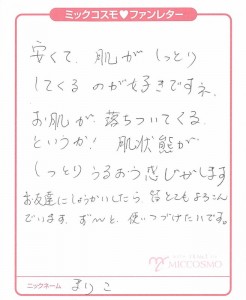 ミックコスモ♥ファンレター
安くて、肌がしっとり
してくるのが好きですネ.
お肌が落ちついてくる.
というか! 肌状態が
しっとりうるおう感じがします
お友達にしょうかいしたら、皆とてもよろこん
でいます. ず～と、使いつづけたいです。
MICCOSMO
ニックネーム まりこ